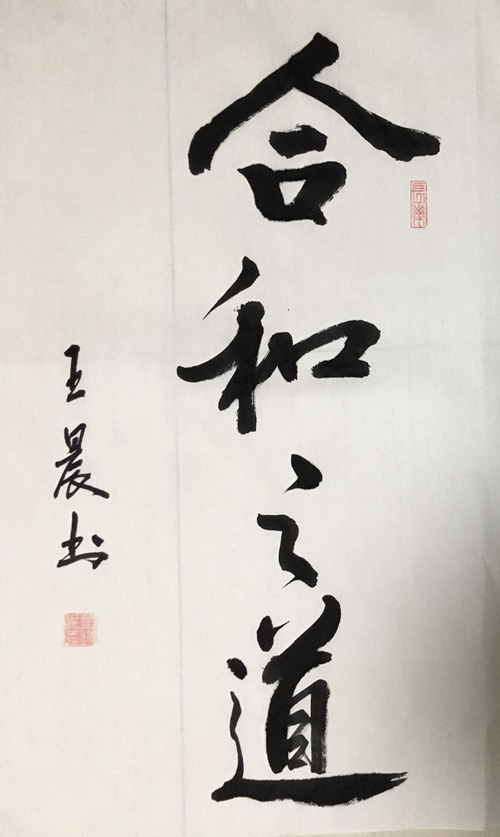 合和之道
王晨书